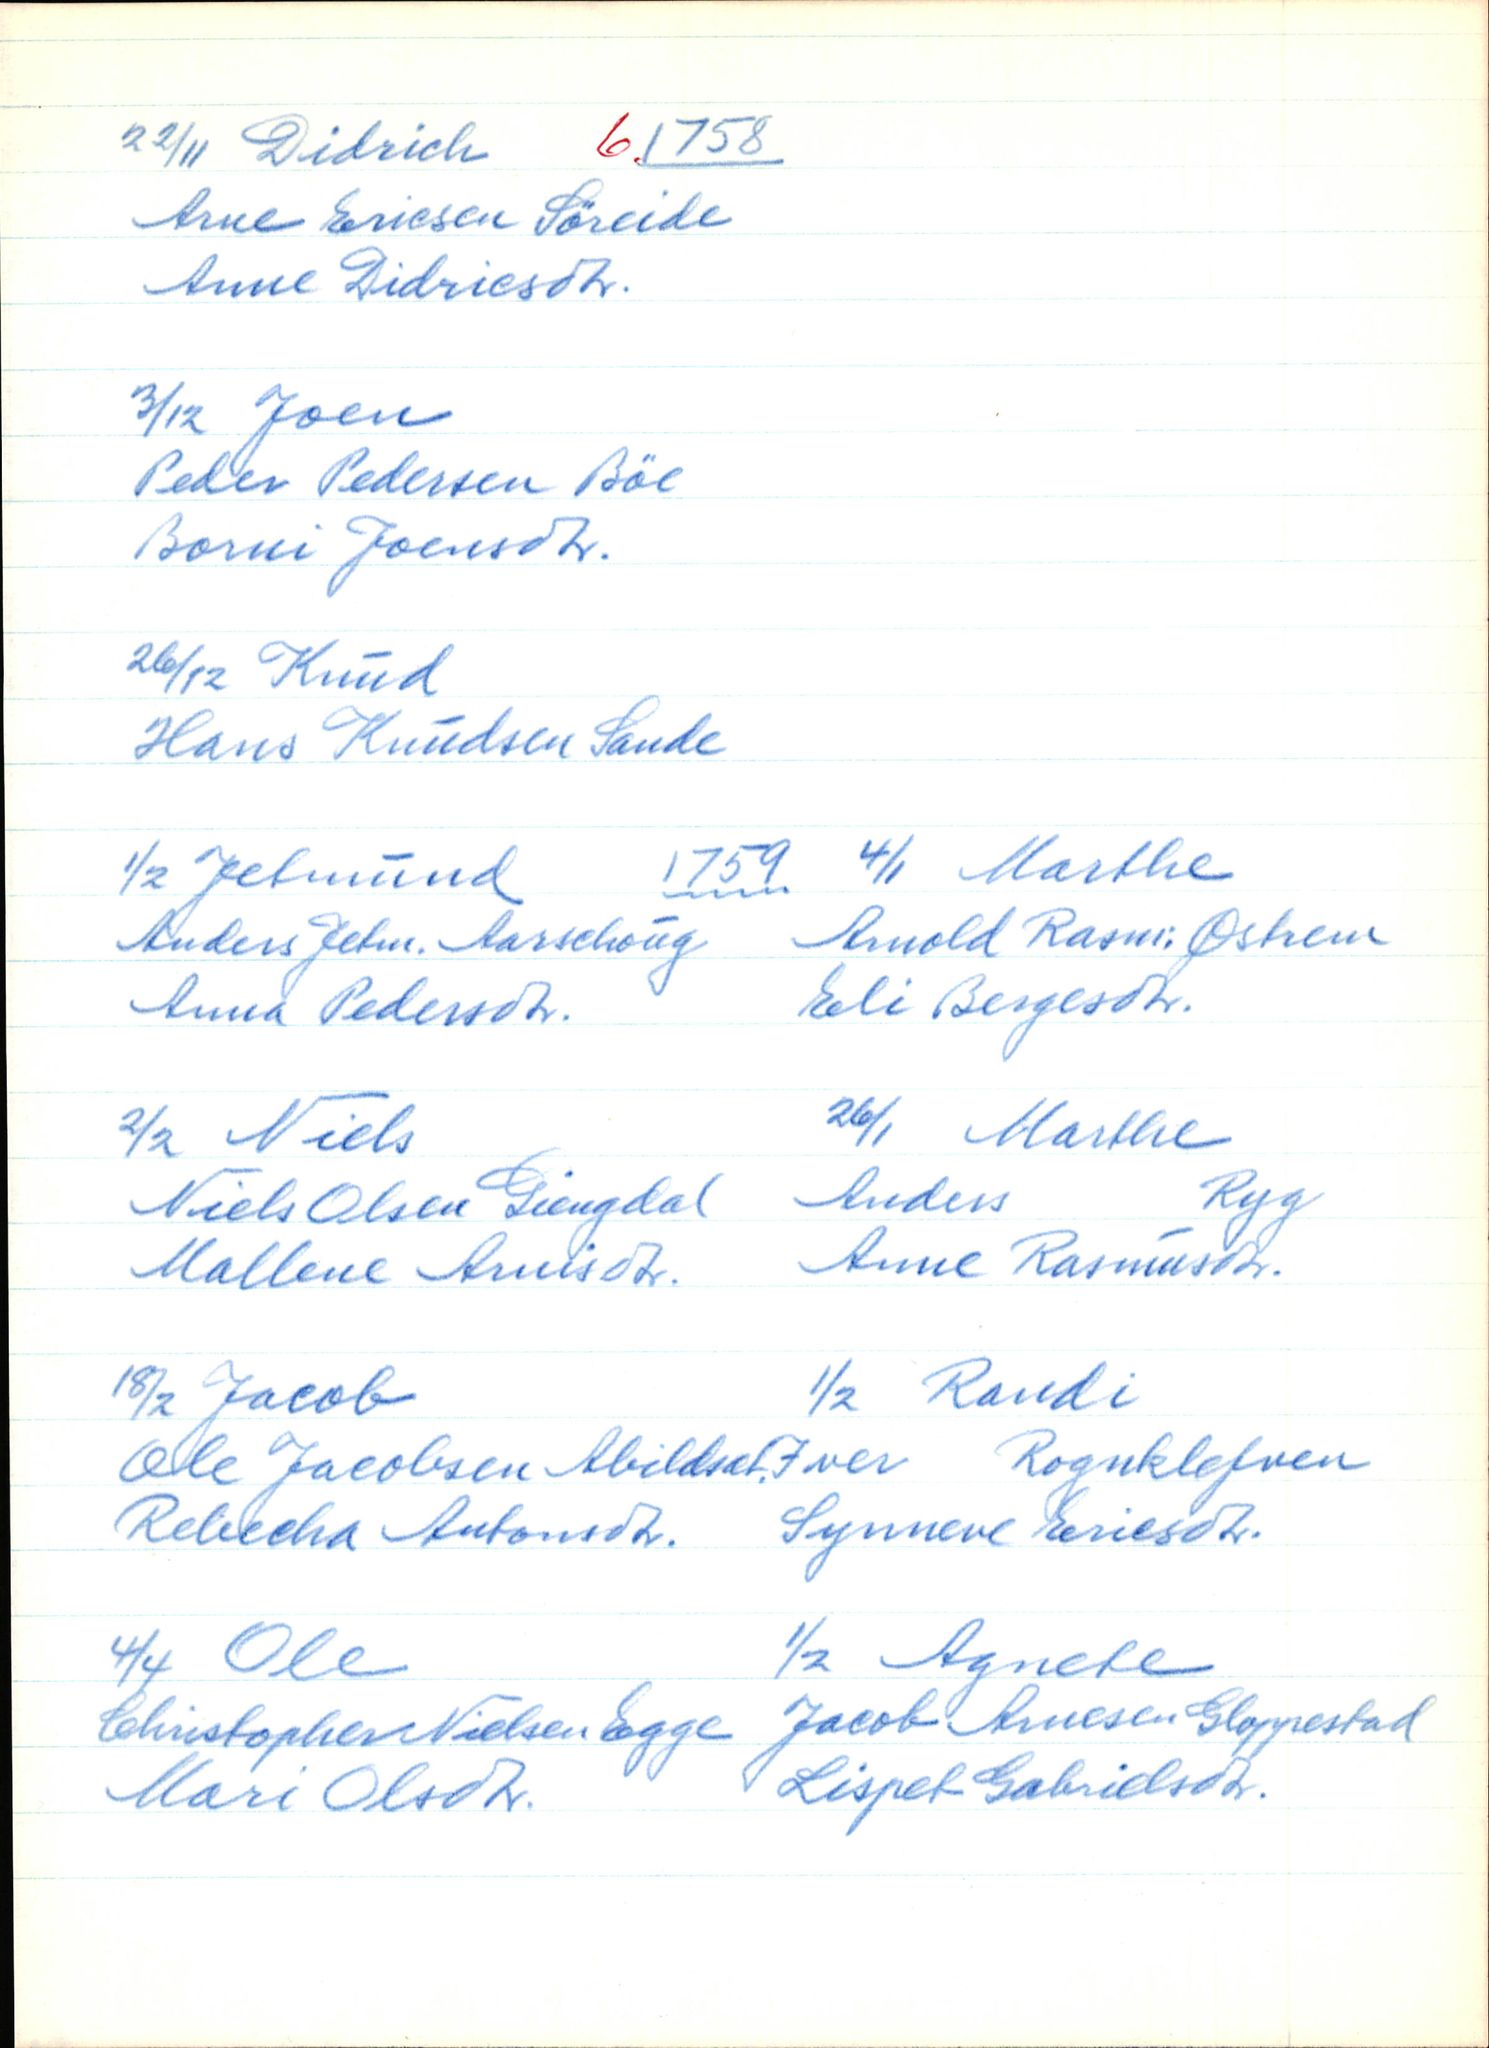 22/11 Didrich 6. 1758
Arne Ericsen Söreide
Anne Didricsdtr.
3/12 Joen
Peder Pedersen Böe
Borni Joensdtr.
26/12 Knud
Hans Knudsen Sande
1/2 Jetmund 1759
Anders Jetm. Aarschoug
Anna Pedersdtr.
2/2 Niels
Niels Olsen Giengdal
Mallene Arnisdtr.
18/2 Jacob
Ole Jacobsen Abildsæt.
Rebecha Antonsdtr.
4/4 Ole
Christopher Nielsen Egge
Mari Olsdtr.
4/1 Marthe
Arnold Rasm. Østrem
Eli Bergesdtr.
26/1 Marthe
Anders Ryg
Anne Rasmusdtr.
1/2 Randi
Iver Rognklefven
Synneve Ericsdtr.
1/2 Agnete
Jacob Arnesen Gloppestad
Lispet Gabrielsdtr.